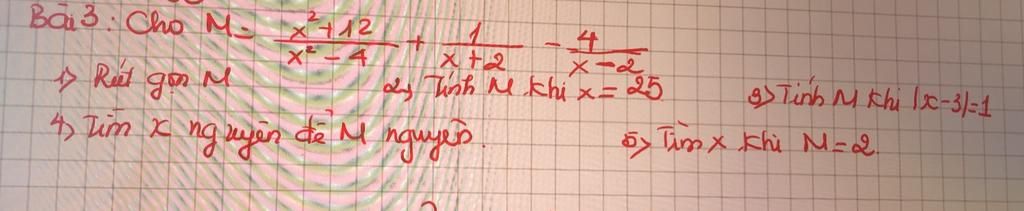 Bài 3: Cho M = (x² + 12)/(x² - 4) + 1/(x + 2) - 4/(x - 2)
1) Rút gọn M 2) Tính M khi x = 25 3) Tính M khi |x-3|=1
4) Tìm x nguyên để M nguyên. 5) Tìm x khi M = 2.